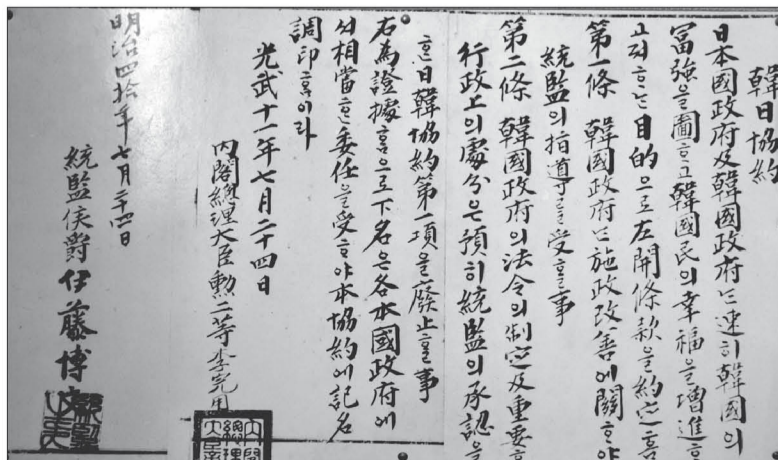 韓日協約
日本國政府及韓國政府는速히韓國의
富强을圖ᄒᆞ고韓國民의幸福을增進ᄒᆞ
고져ᄒᆞ는目的으로左開條款을約定홈
第一條 韓國政府는施政改善에關ᄒᆞ야
統監의指導를受ᄒᆞᆯ事
第二條 韓國政府의法令의制定及重要ᄒᆞ
行政上의處分은預히統監의承認을
ᄒᆞᆫ日韓協約第一項을廢止ᄒᆞᆯ事
右爲證據홈으로下名은各本國政府에
셔相當ᄒᆞᆫ委任을受ᄒᆞ야本協約에記名
調印홈이라
光武十一年七月二十四日
內閣總理大臣勳二等李完用
明治四拾年七月二十四日
統監侯爵伊藤博文